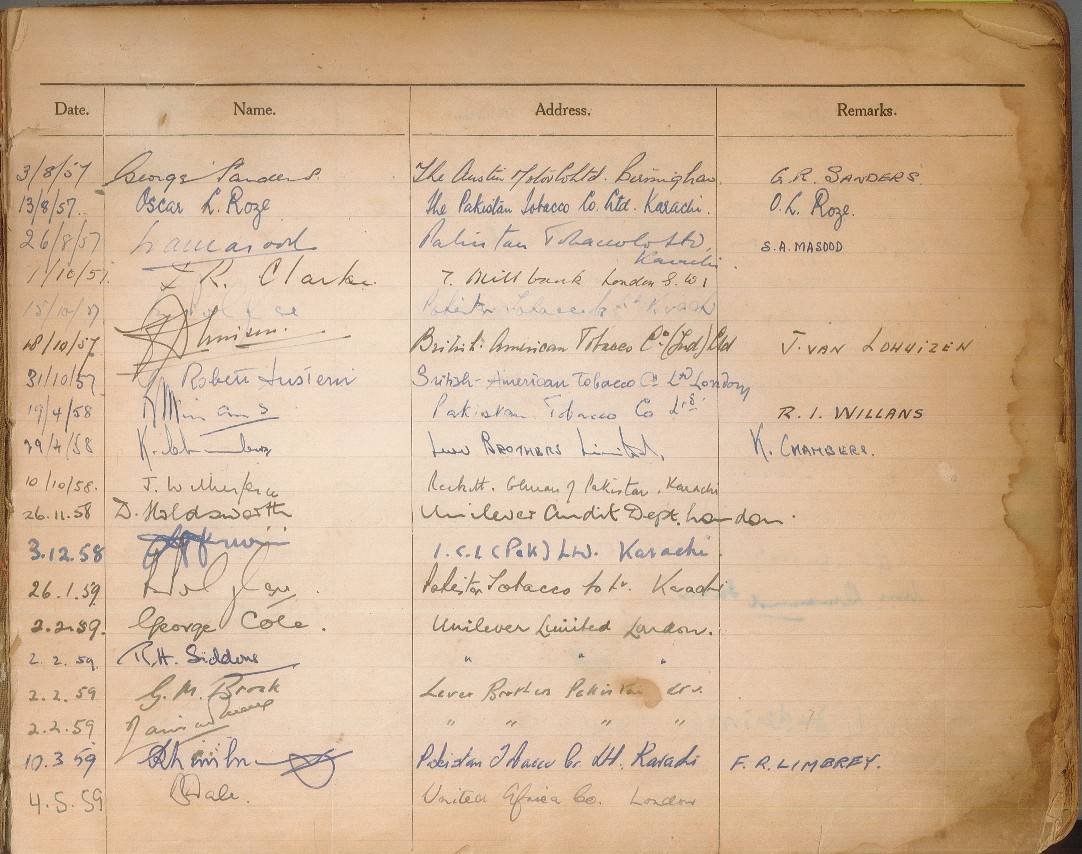 Date. Name. Address. Remarks.
3/8/57 George Sanders The Austin Motor Co Ltd. Birmingham G.R. SANDERS.
13/8/57. Oscar L. Roze The Pakistan Tobacco Co. Ltd. Karachi. O.L. Roze.
26/8/57 Pakistan Tobacco Co Ltd, S.A. MASOOD
Karachi.
1/10/57 R. Clarke. 7. Millbank London S.W.1
15/10/57 Pakistan Tobacco Co Ltd Karachi
18/10/57 British-American Tobacco Co (Ind) Ltd J. VAN LOHUIZEN
31/10/57 Robert British-American Tobacco Co Ltd London
19/4/58 Pakistan Tobacco Co Ltd R. I. WILLANS
29/4/58 K. Chambers Lever BROTHERS Limited, K. CHAMBERS.
10/10/58. J. of Pakistan. Karachi
26.11.58 D. Holdsworth Unilever Audit Dept. London.
3.12.58 I.C.I (Pak) Ltd. Karachi.
26.1.59. Pakistan Tobacco Co Ltd. Karachi
2.2.59. George Cole. Unilever Limited London.
2.2.59. R.H. Siddons " " "
2.2.59 G. M. Brook Lever Brothers Pakistan Ltd.
2.2.59 " " " "
10.3.59 Pakistan Tobacco Co. Ltd. Karachi F.R. LIMBREY.
4.5.59 United Africa Co. London